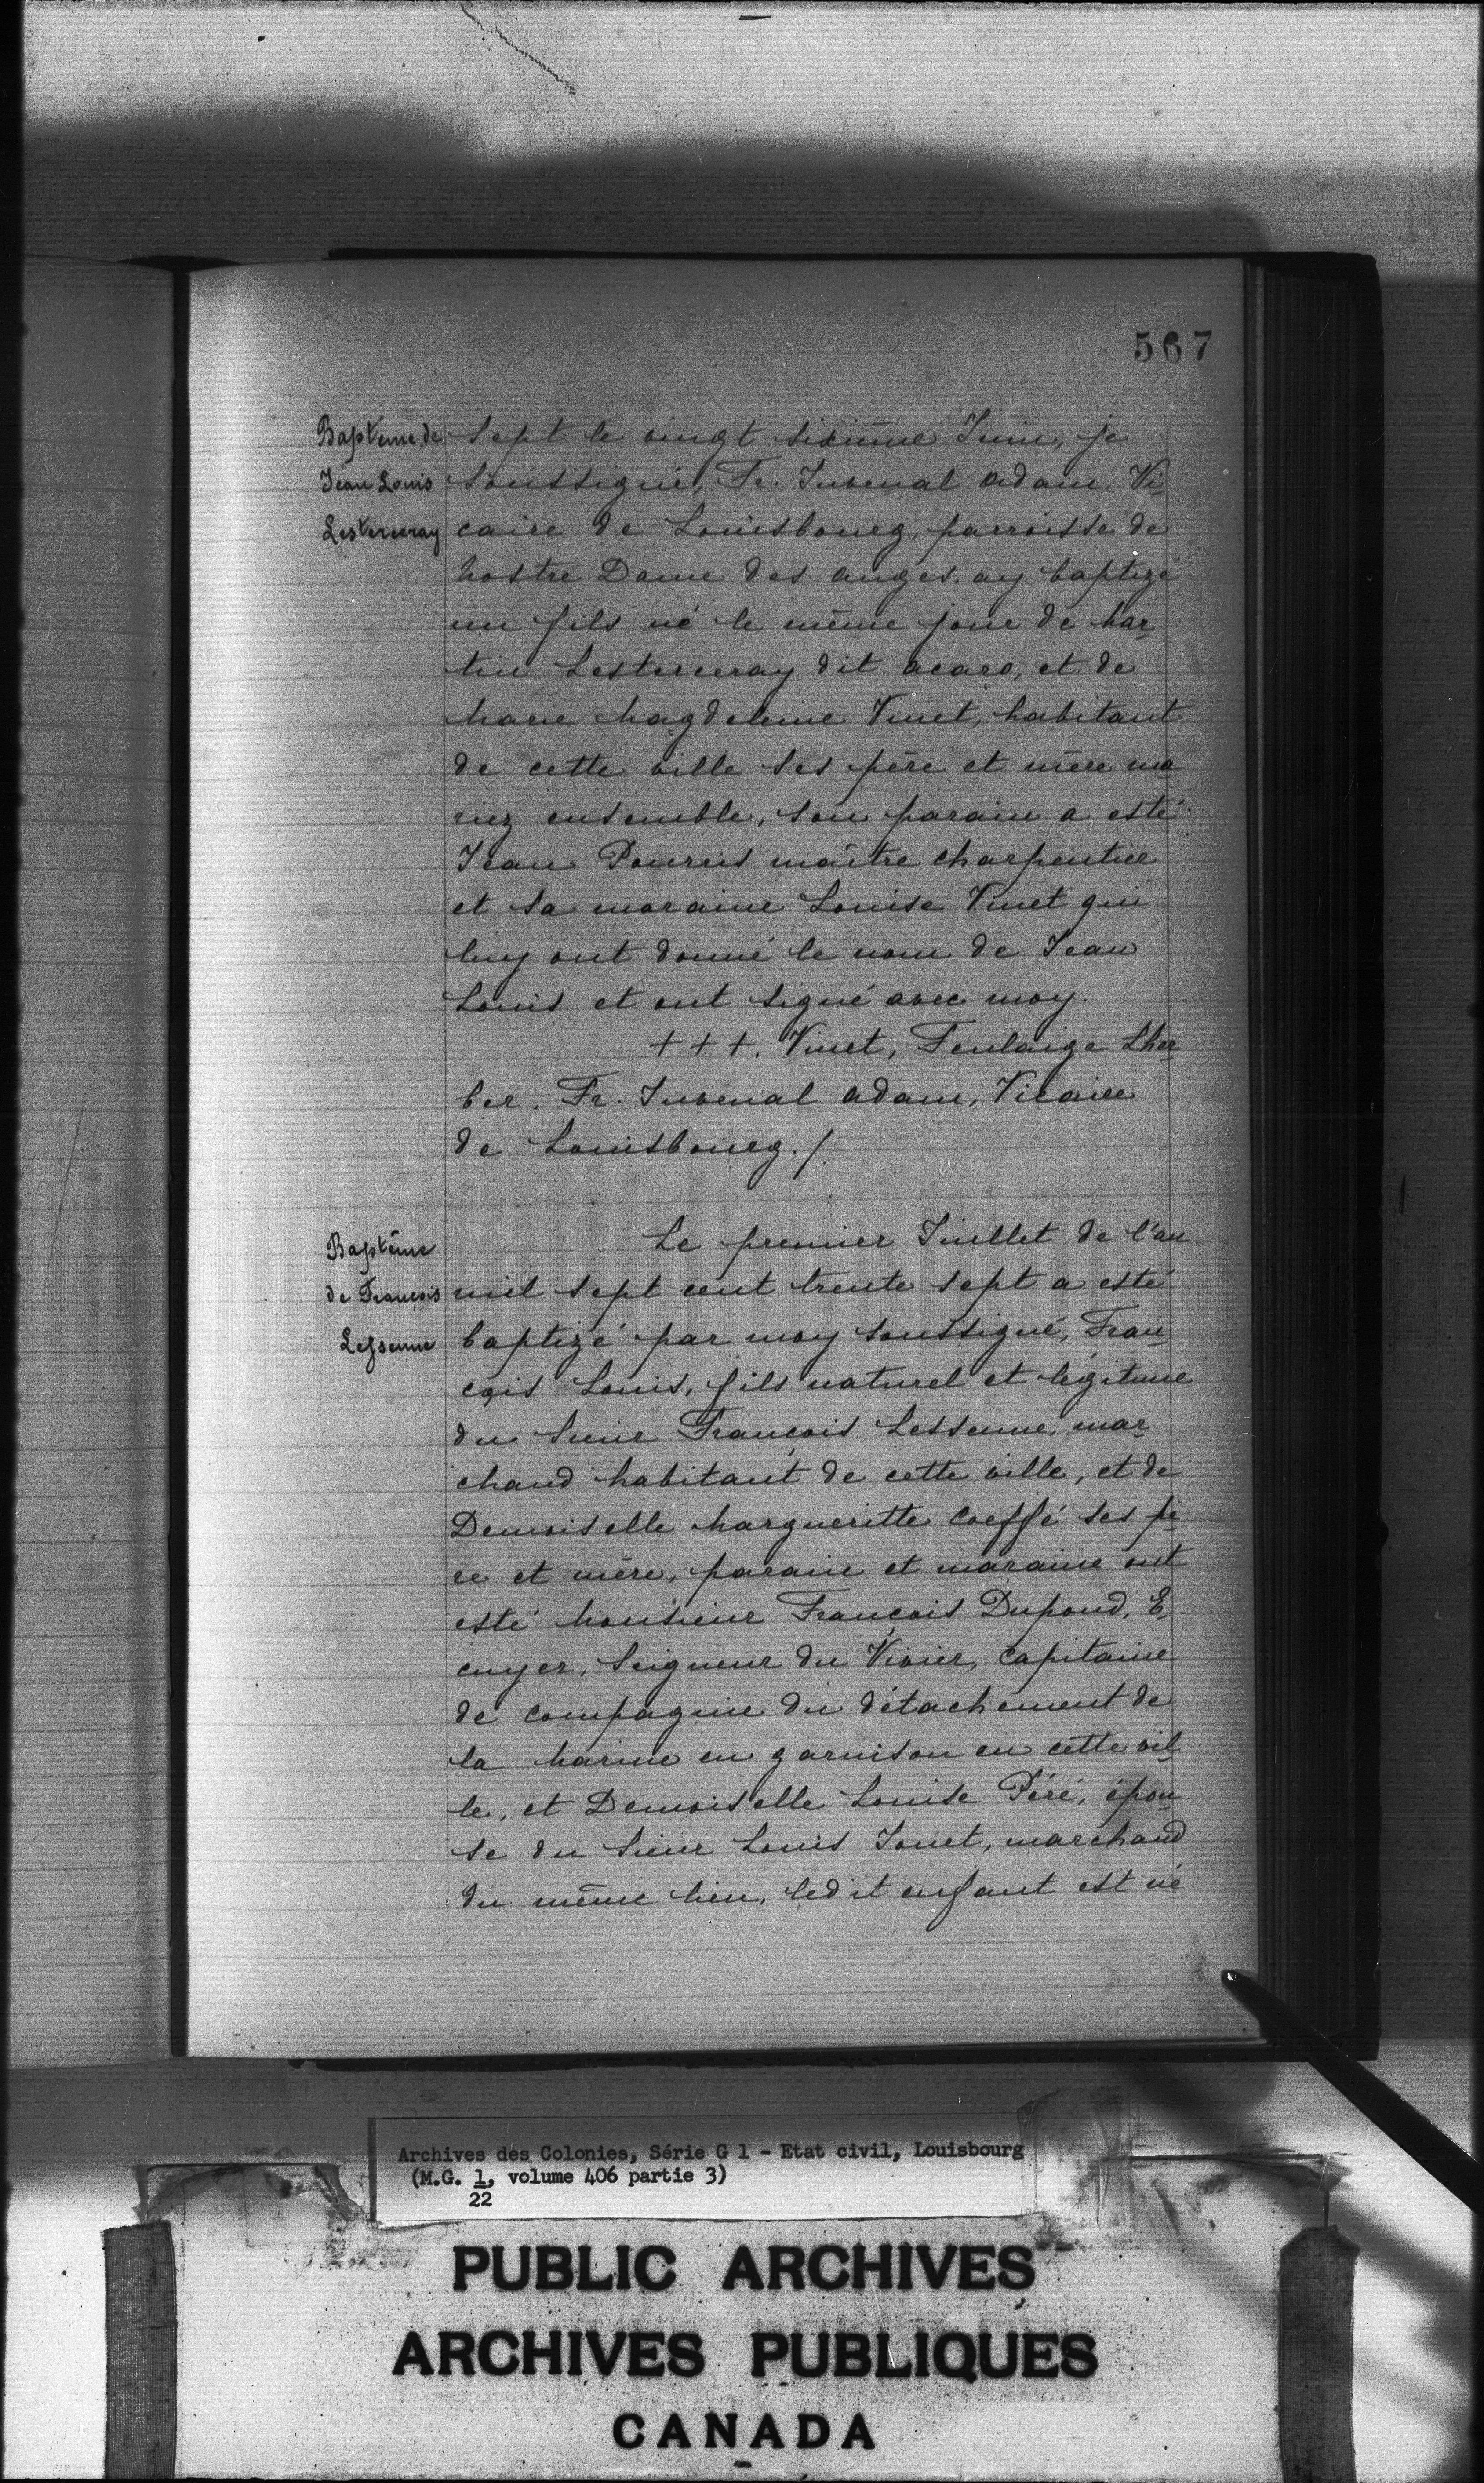 567
Baptême de
Jean Louis
Lesterceray
Sept le vingt sixième Juin, je
Soussigné, Fr. Juvenal Adam. Vi-
caire de Louisbourg, parroisse de
Nostre Dame des Anges. ay baptizé
un fils né le même jour de Mar-
tin Lesterceray dit acaro, et de
Marie Magdeleine Vinet, habitant
de cette ville ses père et mère ma
riez ensemble, son parain a esté
Jean Pourris maître charpentier
et sa maraine Louise Vinet qui
luy ont donné le nom de Jean
Louis et ont signé avec moy.
+++. Vinet, Feulaige Lher-
ber. Fr. Juvenal Adam, Vicaire
de Louisbourg./.
Baptême
de François
Lessenne
Le premier Juillet de l'an
mil sept cent trente sept a esté
baptizé par moy soussigné, Fran-
çois Louis, fils naturel et légitime
du Sieur François Lessenne, mar-
chand habitant de cette ville, et de
Demoiselle Margueritte Coeffé ses pè-
re et mère, parain et maraine ont
esté Monsieur François Dupond, E-
cuyer, Seigneur du Vivier, Capitaine
de Compagnie du détachement de
la Marine en garnison en cette vil-
le, et Demoiselle Louise Péré, épou-
se du Sieur Louis Jouet, marchand
du même lieu, ledit enfant est né
Archives des Colonies, Série G 1 - Etat civil, Louisbourg
(M.G. 1, volume 406 partie 3)
22
PUBLIC ARCHIVES
ARCHIVES PUBLIQUES
CANADA